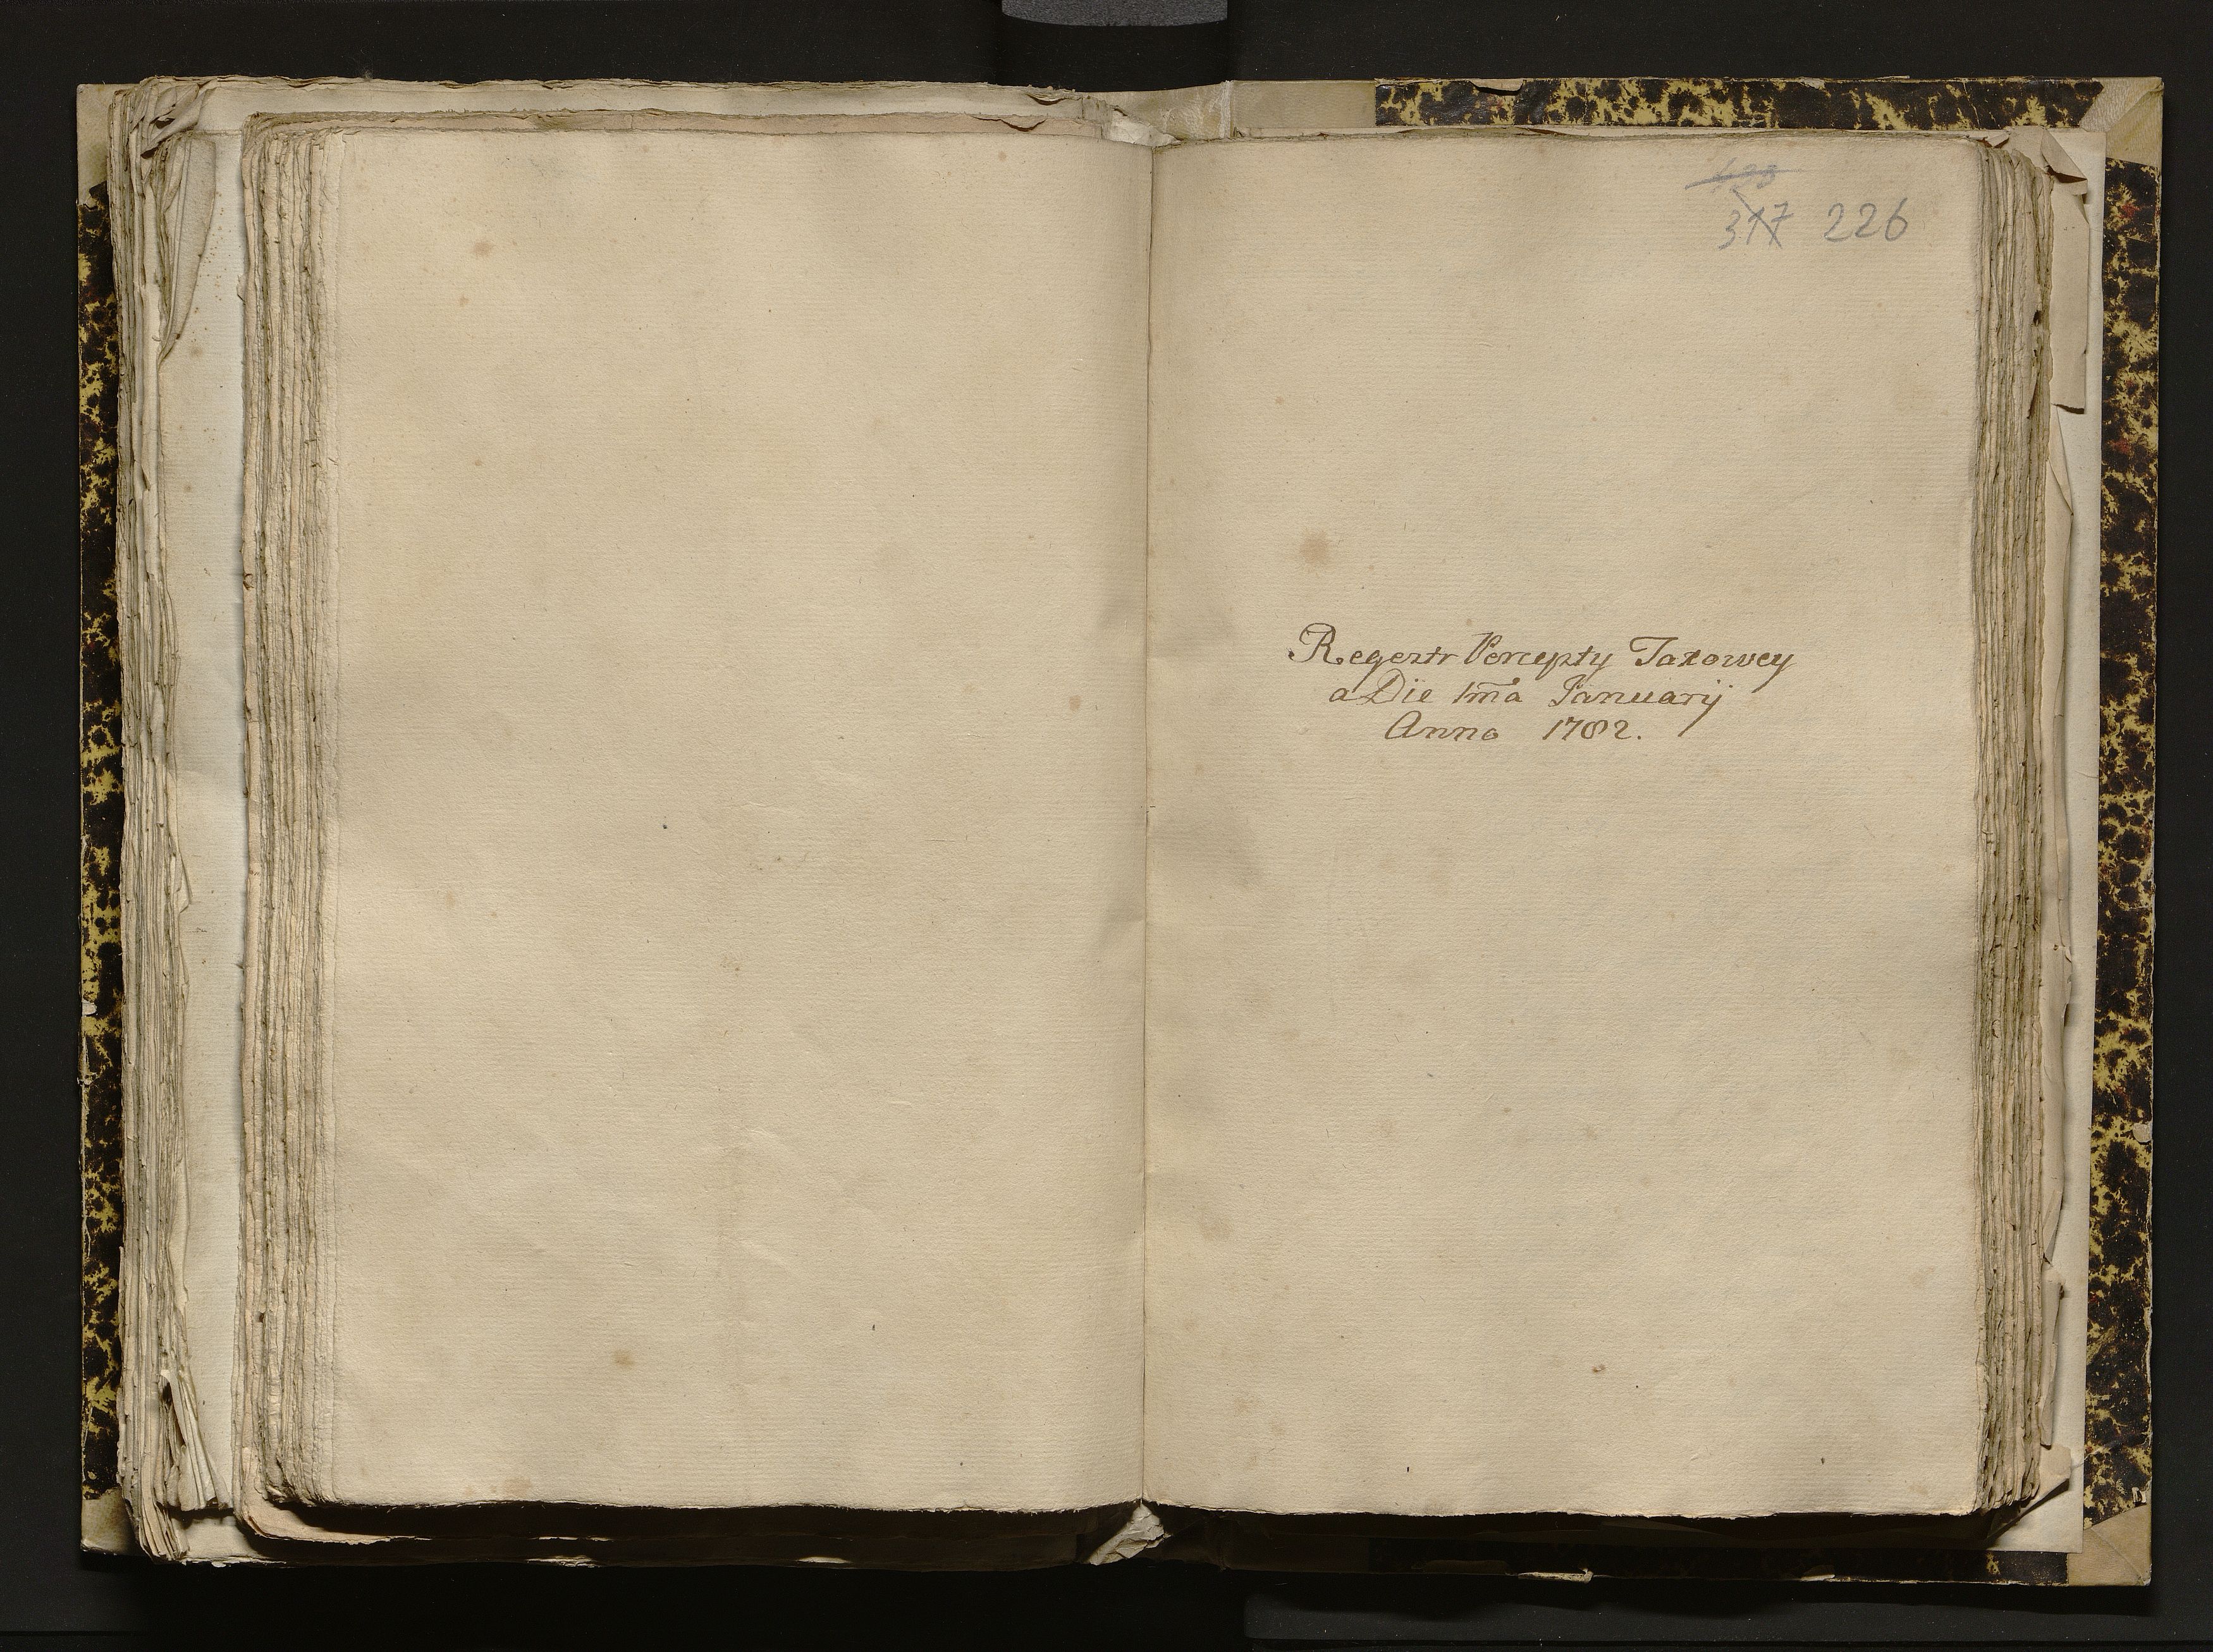 317 226
Regestr Percepty Taxowey
a Die 1m̃a Januarij
Anno 1782.